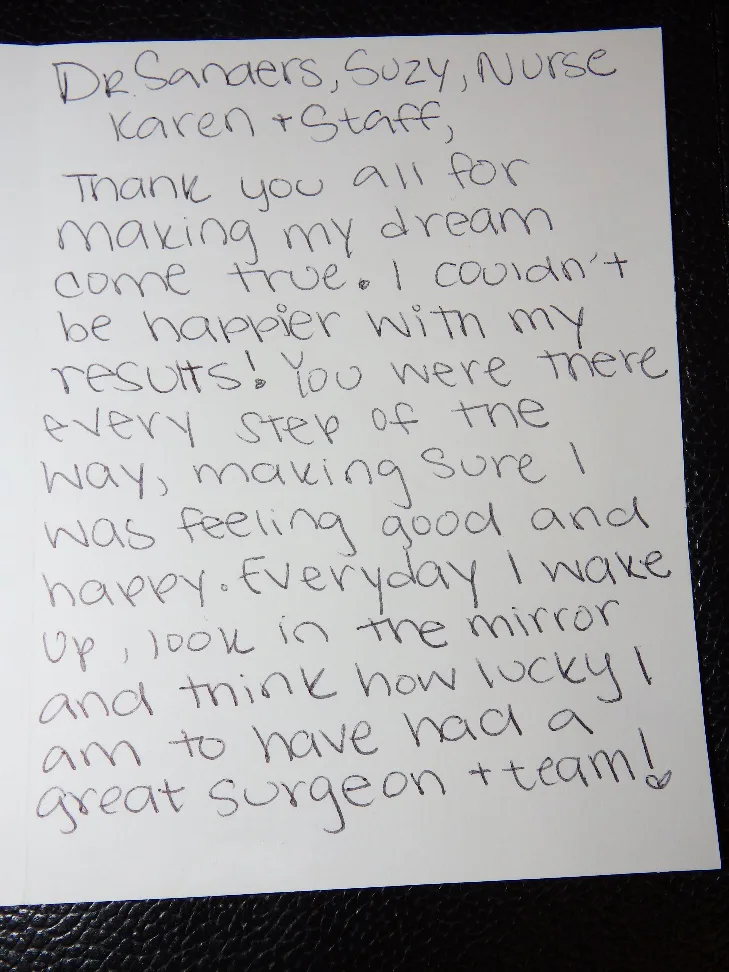 Dr. Sanders, Suzy, Nurse
Karen + Staff,
Thank you all for
making my dream
come true. I couldn't
be happier with my
results! You were there
every step of the
way, making sure I
was feeling good and
happy. Everyday I wake
up, look in the mirror
and think how lucky I
am to have had a
great surgeon + team!